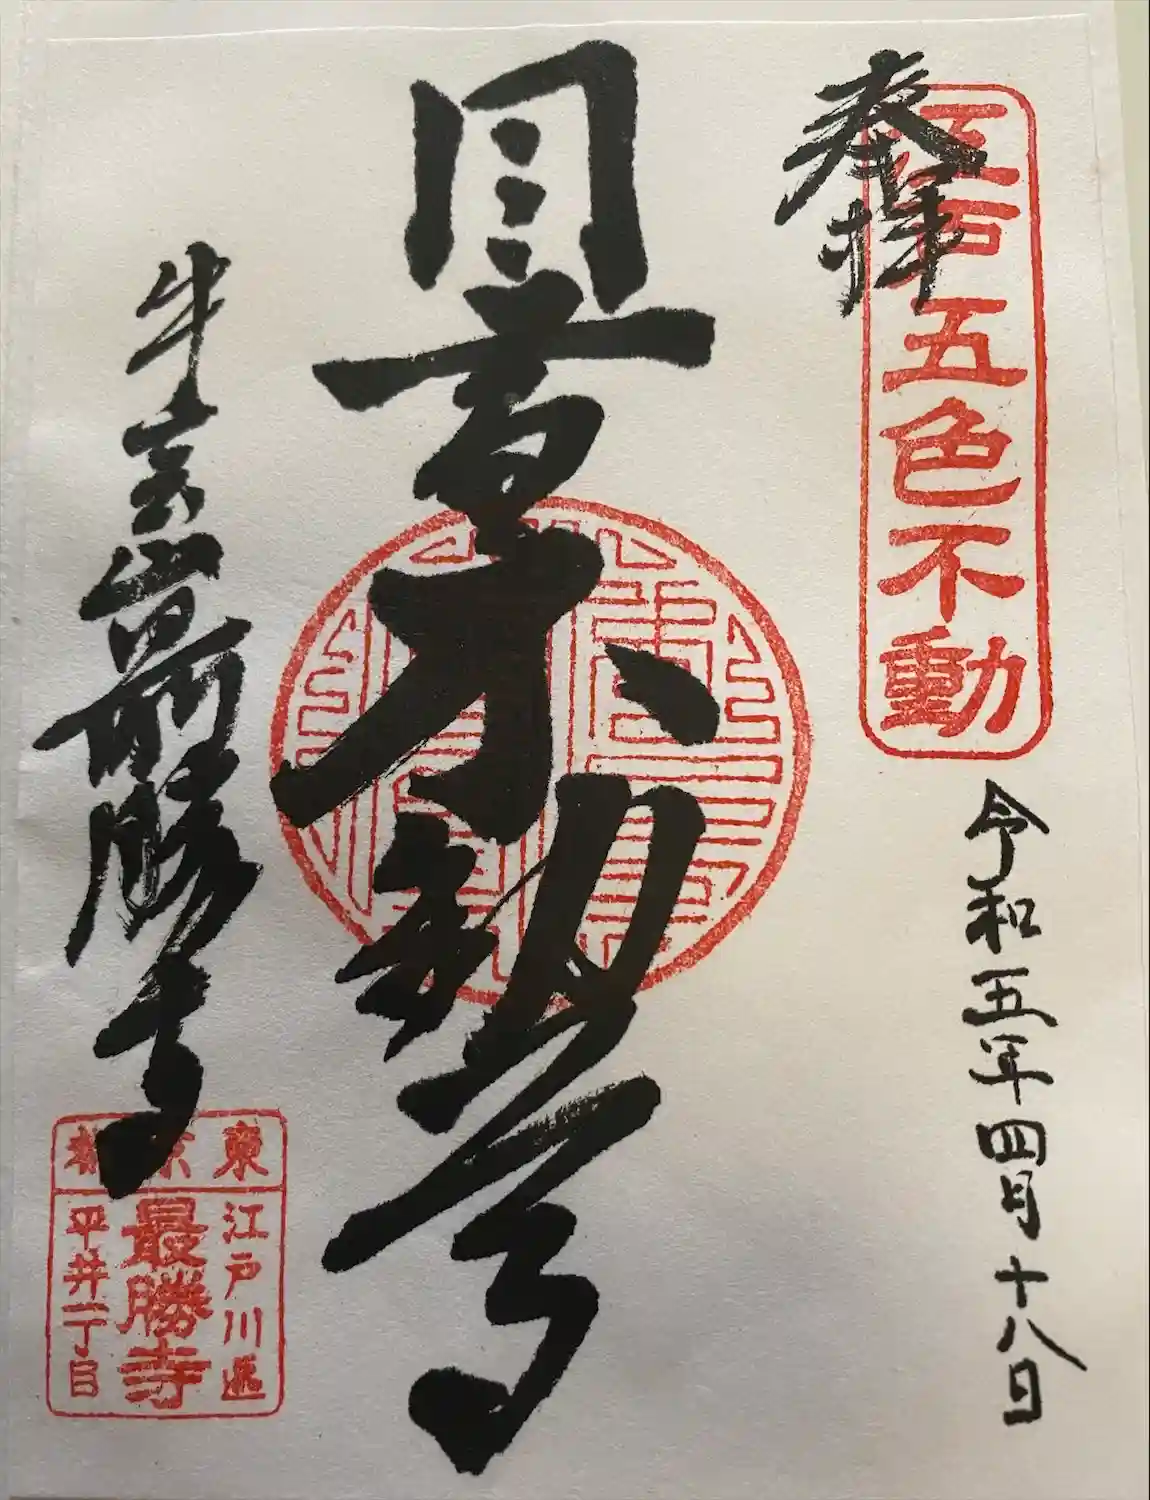 奉拝
江戸五色不動
令和五年四月十八日
目黄不動尊
牛宝山最勝寺
東京都
江戸川区
最勝寺
平井一丁目